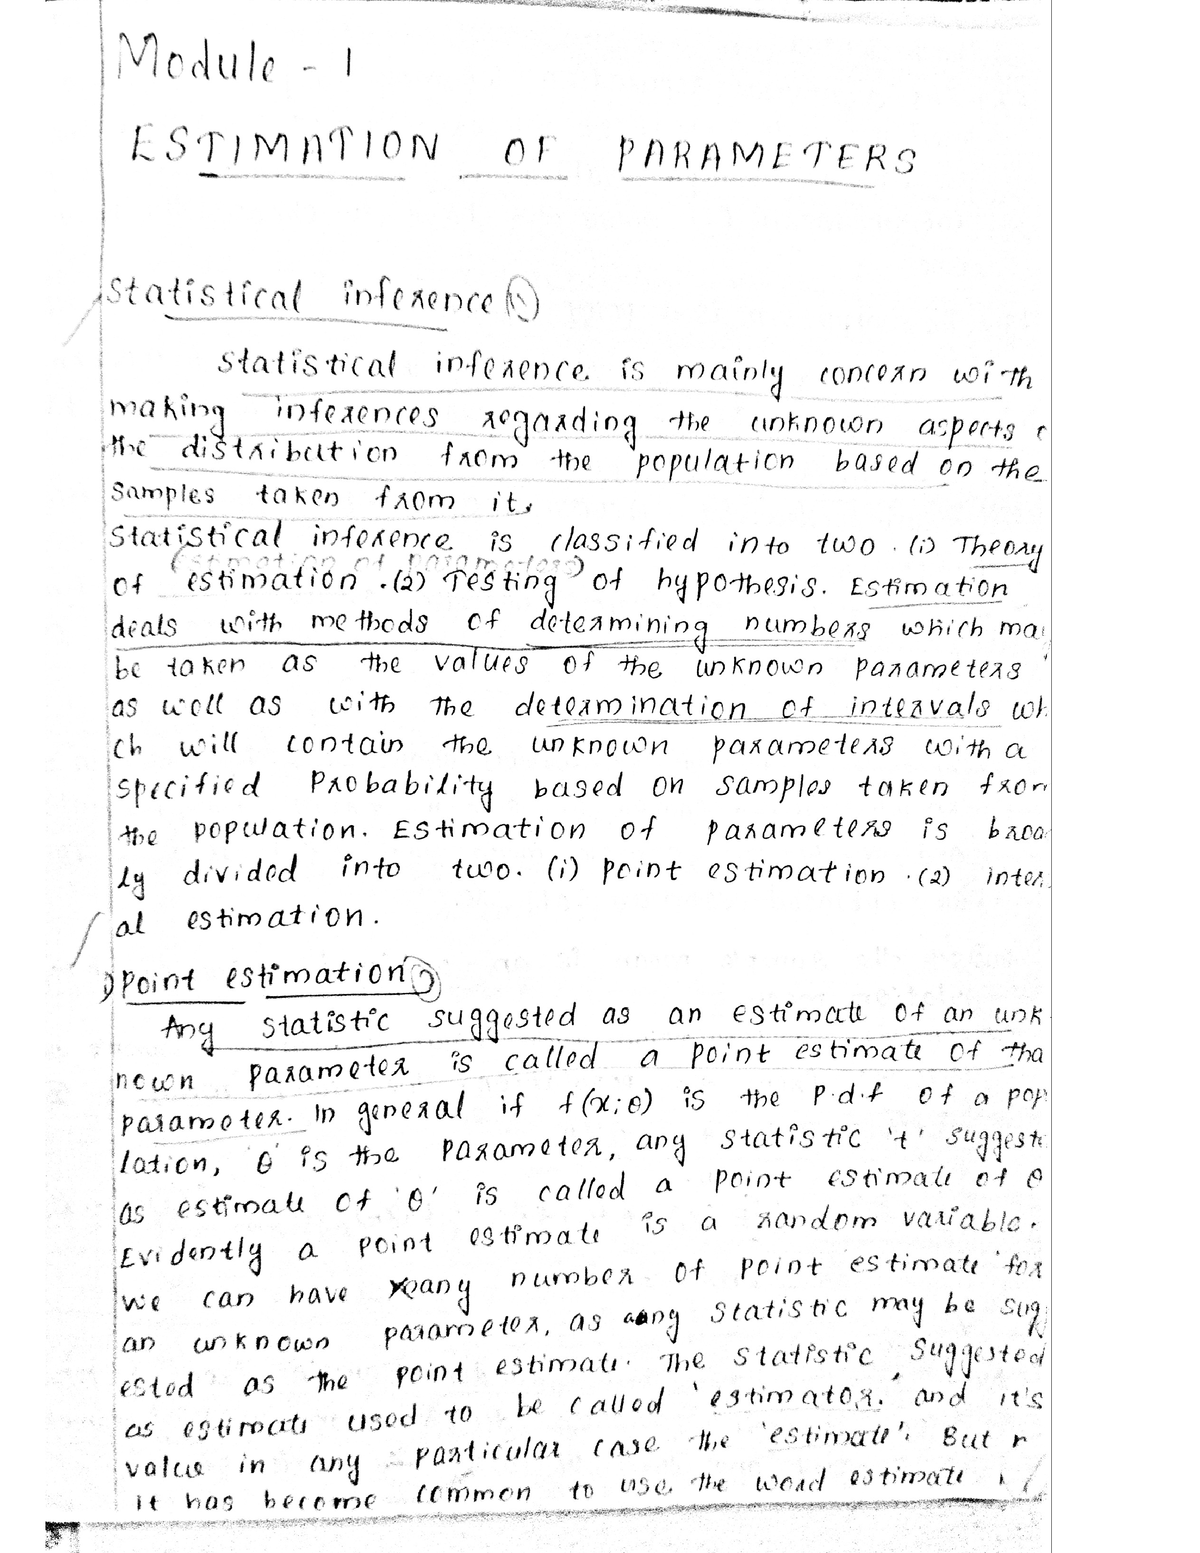 Module - 1
ESTIMATION OF PARAMETERS
Statistical inference
Statistical inference is mainly concern with
making inferences regarding the unknown aspects
the distribution from the population based on the
samples taken from it.
Statistical inference is classified into two. (i) Theory
(estimation of parameters)
of estimation. (2) Testing of hypothesis. Estimation
deals with methods of determining numbers which ma
be taken as the values of the unknown parameters
as well as with the determination of intervals wh
ch will contain the unknown parameters with a
specified Probability based on samples taken from
the population. Estimation of parameters is broa
ly divided into two. (i) point estimation. (2) inter
al estimation.
1) Point estimation
Any statistic suggested as an estimate of an unk
nown parameter is called a point estimate of tha
parameter. In general if f(x;θ) is the P.d.f of a pop
lation, 'θ' is the parameter, any statistic 't' suggest
as estimate of 'θ' is called a point estimate of θ
Evidently a point estimate is a random variable.
we can have many number of point estimate for
an unknown parameter, as any statistic may be sug
ested as the point estimate. The statistic suggested
as estimate used to be called 'estimator.' and it's
value in any particular case the 'estimate'. But
it has become common to use the word estimate